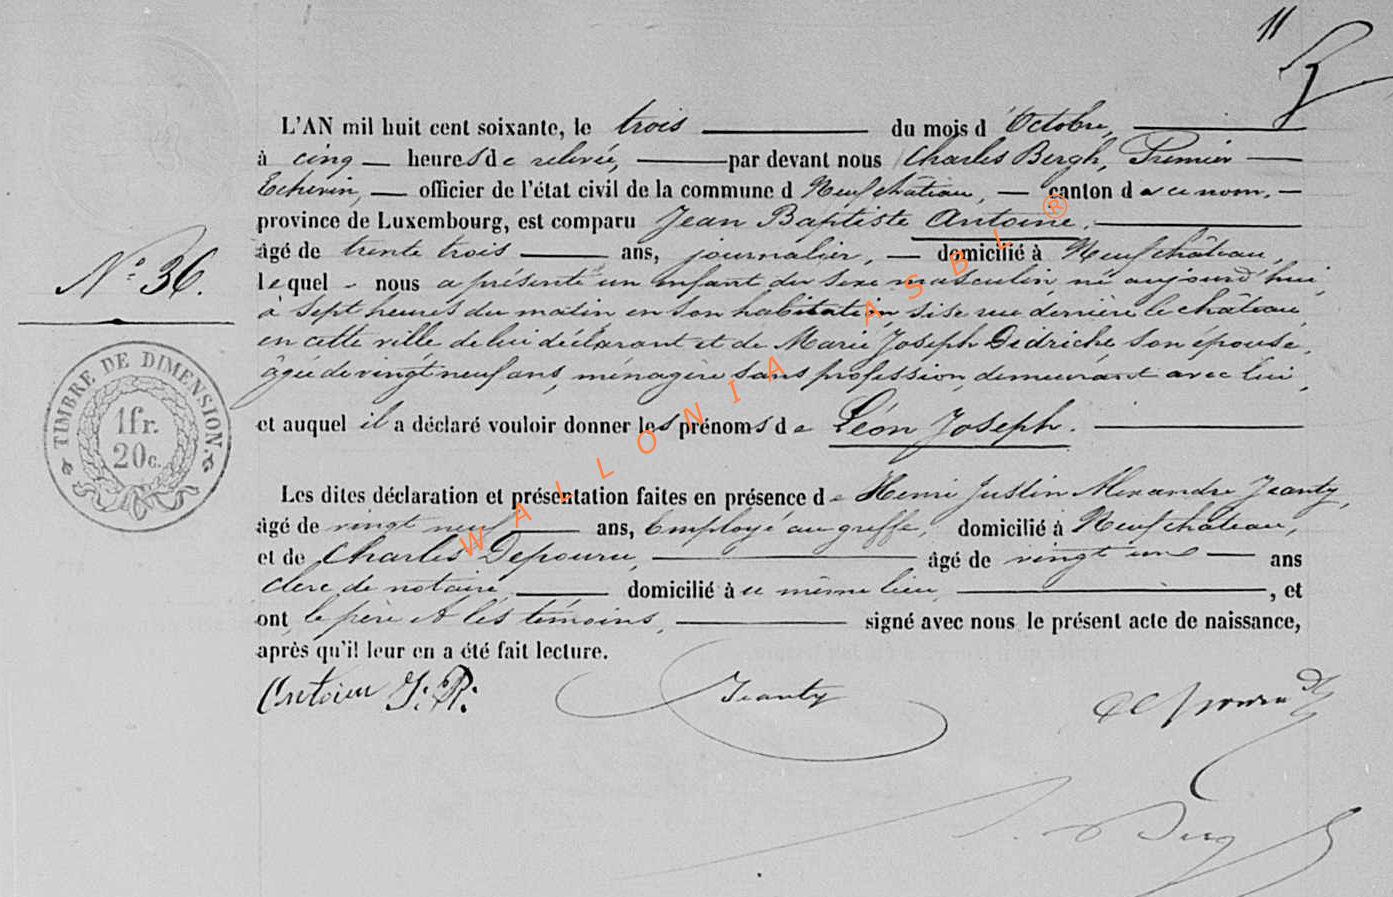 11
L'AN mil huit cent soixante, le trois du mois d'Octobre,
à cinq heures de relevée, par devant nous Charles Bergh, Premier
Echevin, officier de l'état civil de la commune d Neufchâteau, canton de ce nom,
province de Luxembourg, est comparu Jean Baptiste Antoine,
âgé de trente trois ans, journalier, domicilié à Neufchâteau,
lequel nous a présenté un enfant du sexe masculin, né aujourd'hui,
à sept heures du matin en son habitation, sise rue derrière le château
en cette ville de lui déclarant et de Marie Joseph Didriche, son épouse,
âgée de vingt neuf ans, ménagère sans profession, demeurant avec lui,
et auquel il a déclaré vouloir donner les prénoms de Léon Joseph.
N° 36.
TIMBRE DE DIMENSION.
1fr.
20c.
Les dites déclaration et présentation faites en présence de Henri Justin Alexandre Jeanty,
âgé de vingt neuf ans, Employé au greffe, domicilié à Neufchâteau,
et de Charles Depouru, âgé de vingt un ans
clerc de notaire, domicilié à ce même lieu, et
ont, le père et les témoins, signé avec nous le présent acte de naissance,
après qu'il leur en a été fait lecture.
Antoine J. B. Jeanty
WALLONIA ASBL ®